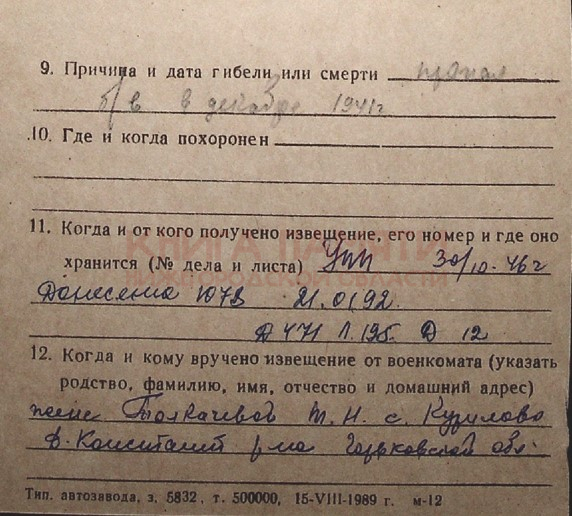 9. Причина и дата гибели или смерти пропал
б/в в декабре 1941г
10. Где и когда похоронен
11. Когда и от кого получено извещение, его номер и где оно
КНИГА ПАМЯТИ
хранится (№ дела и листа) Упп 30/10-46г
Донесение 1078 21.01.92.
Д 471 Л.195. Д 12
12. Когда и кому вручено извещение от военкомата (указать
родство, фамилию, имя, отчество и домашний адрес)
жене Толкачевой Т. Н. с. Курилово
Д-Констант р-на Горьковской обл.
Тип. автозавода, з. 5832, т. 500000, 15-VIII-1989 г. м-12